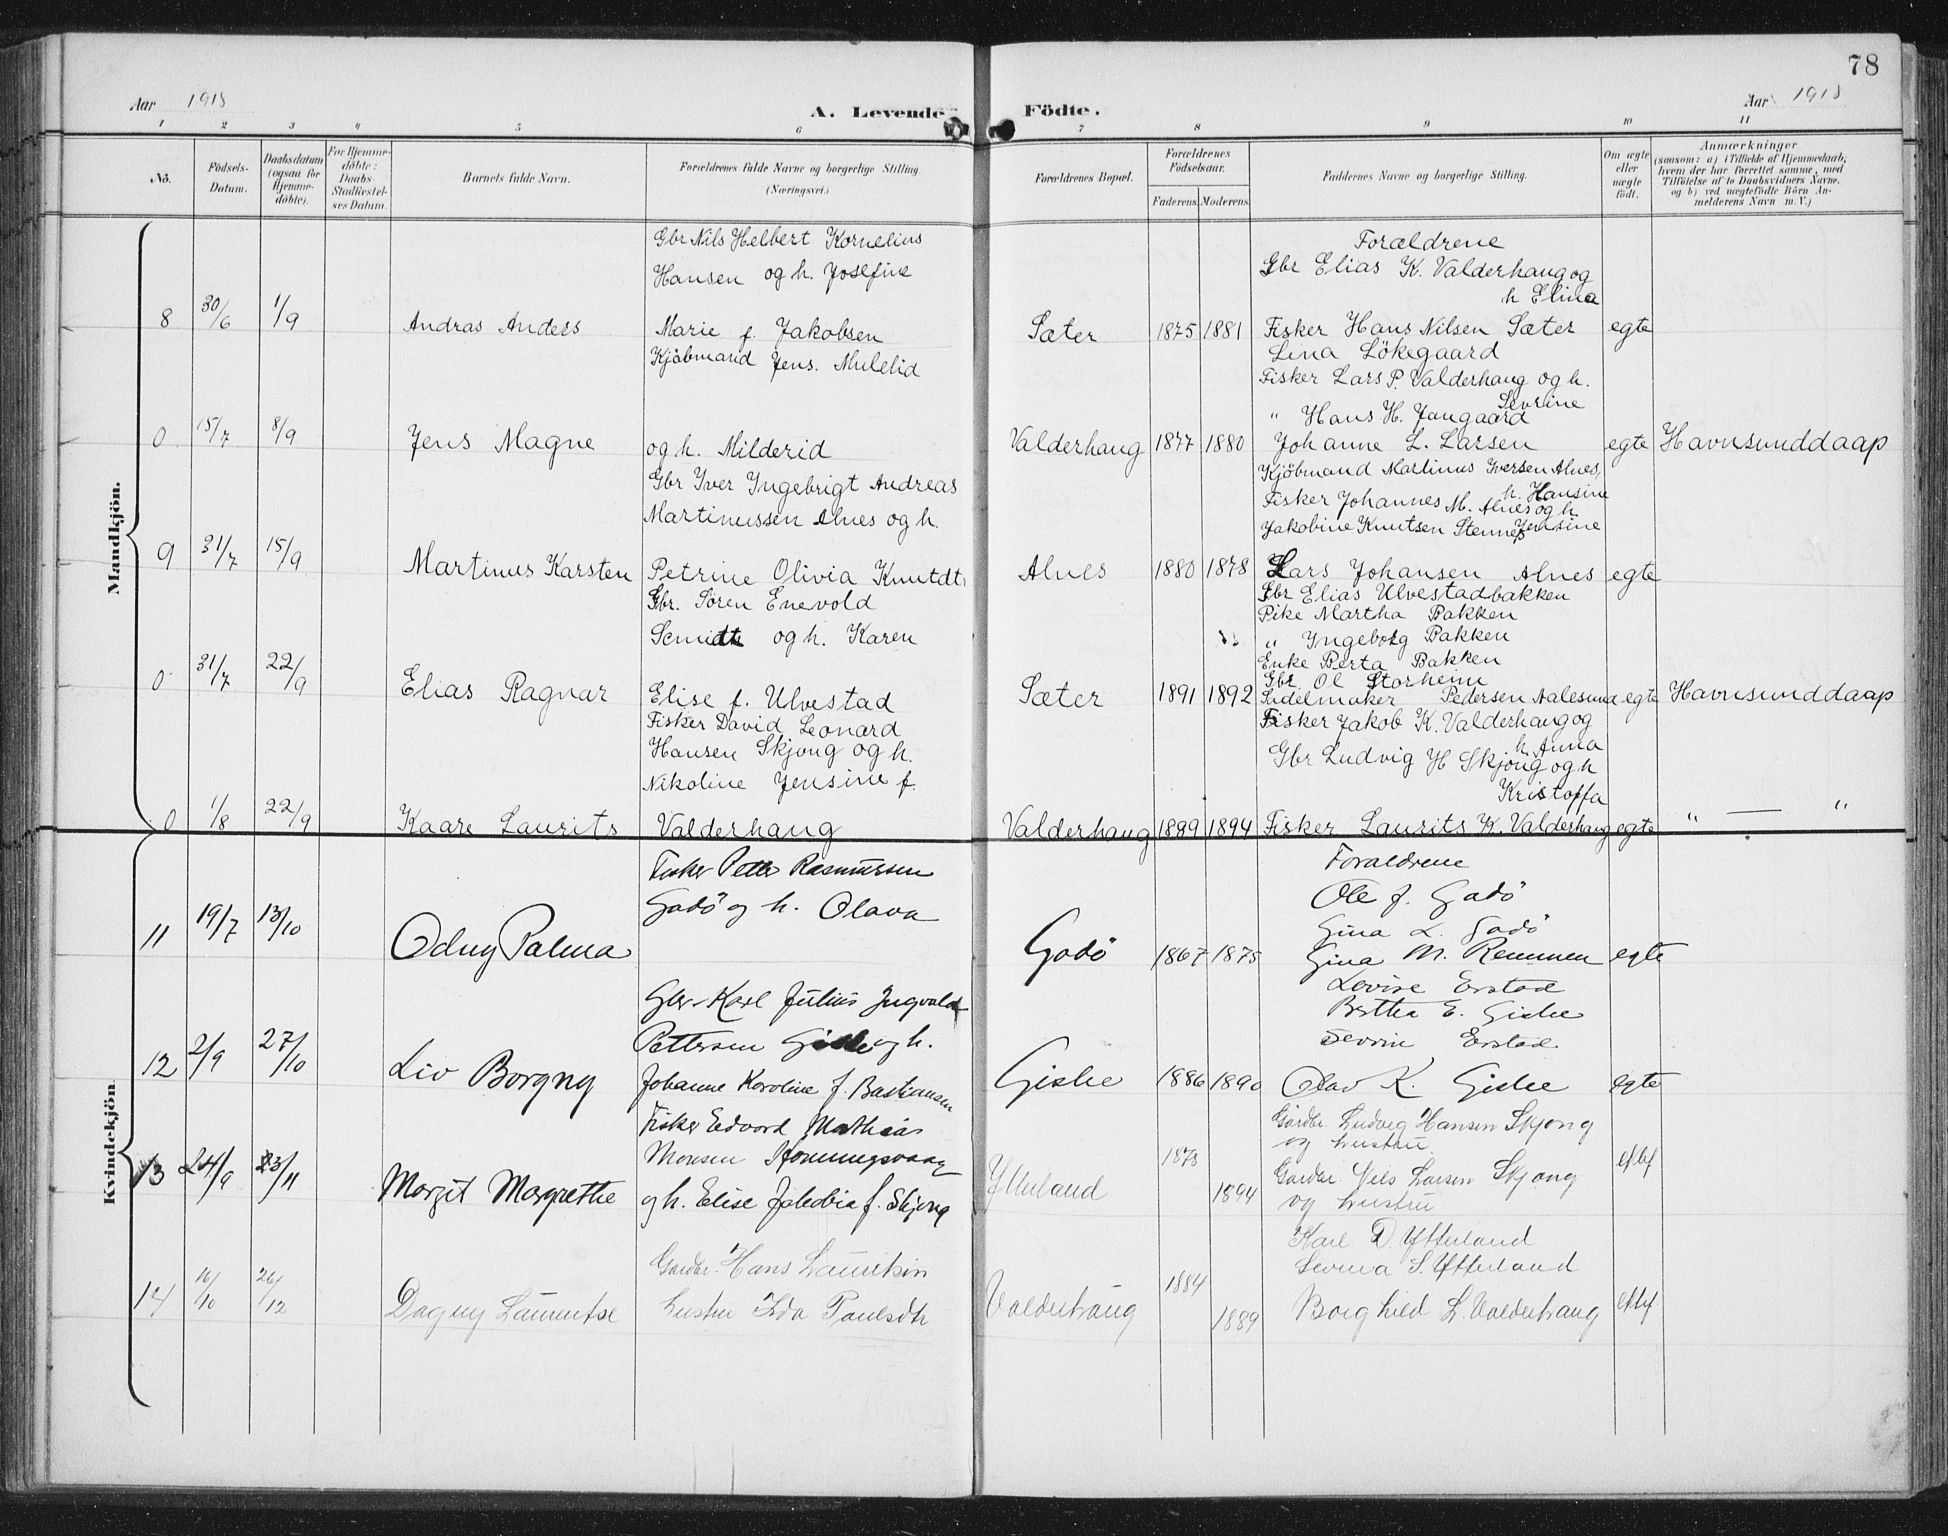 78
Aar 1918
A. Levende Födte.
Aar 1918
1 2 3 4 5 6 7 8 9 10 11
No.
Födsels-Datum.
Daabsdatum (ogsaa for Hjemme-döbte).
For Hjemme-döbte: Daabs-Stadfæstel-ses Datum.
Barnets fulde Navn.
Forældrenes fulde Navne og borgerlige Stilling (Næringsvei.)
Forældrenes Bopæl.
Forældrenes Födselsaar.
Faderens. Moderens.
Faddernes Navne og borgerlige Stilling.
Om ægte eller uægte födt.
Anmærkninger
(saasom: a) i Tilfælde af Hjemmedaab,
hvem der har forrettet samme, med
Tilföielse af to Daabsvidners Navne,
og b) ved uægtefödte Börn An-
melderens Navn m. V.)
Mandkjön.
8 30/6 1/9 Andras Anders
Gbr Nils Helbert Kornelius
Hansen og h. Josefine
Marie f. Jakobsen
Sæter 1875 1881
Forældrene
Gbr Elias K. Valderhaug og
h Elina
Fisker Hans Nilsen Sæter
Lina Lökegaard
egte
0 15/7 8/9 Jens Magne
Kjöbmand Jens. Mulelid
og h. Milderid
Valderhaug 1877 1880
Fisker Lars P. Valderhaug og h.
Sevrine
" Hans H. Jangaard
Johanne L. Larsen
egte Havnsunddaap
9 31/7 15/9 Martinus Karsten
Gbr Iver Ingebrigt Andreas
Martinussen Alnes og h.
Petrine Olivia Knutdt
Alnes 1880 1878
Kjöbmand Martinus Iversen Alnes,
h. Hansine
Fisker Johannes M. Alnes og h
Jensine
Jakobine Knutsen Stennes
Lars Johansen Alnes
egte
0 31/7 22/9 Elias Ragnar
Gbr. Sören Enevold
Scmidth og h. Karen
Elise f. Ulvestad
Sæter 1891 1892
Gbr Elias Ulvestadbakken
Pike Martha Bakken
" Ingeborg Bakken
Enke Berta Bakken
Gbr Ol Storheim
Sadelmaker Pedersen Aalesund
egte Havnsunddaap
0 1/8 22/9 Kaare Laurits
Fisker David Leonard
Hansen Skjong og h.
Nikoline Jensine f.
Valderhaug
Valderhaug 1899 1894
Fisker Jakob K. Valderhaug og
h. Anna
Gbr Ludvig H Skjong og h
Kristoffa
Fisker Laurits K. Valderhaug
egte " — "
Kvindekjön
11 19/7 13/10 Odny Palma
Fisker Petter Rasmussen
Godö og h. Olava
Godö 1867 1875
Foraldrene
Ole J. Godö
Gina L. Godö
Gina M. Remmen
egte
12 2/9 27/10 Liv Borgny
Gbr Karl Julius Ingvald
Pettersen Giske og h.
Johanne Karoline f. Bastiansen
Giske 1886 1890
Lovise Erstad
Berthea E. Giske
Sevrin Erstad
Olav K. Giske
egte
13 24/9 23/11 Margit Margrethe
Fisker Edvard Mathias
Monsen Honningsvaag
og h. Elise Jakobia f. Skjong
Ytterland 1878 1894
Gardbr. Ludvig Hansen Skjong
og hustru
Gardbr. Nils Larsen Skjong
og hustru
14 16/10 26/12 Dagny
Gardbr. Hans
hustru Ida Paulsdtr
Valderhaug 1884 1889
Karl D. Ytterland
S. Ytterland
Borghild L. Valderhaug